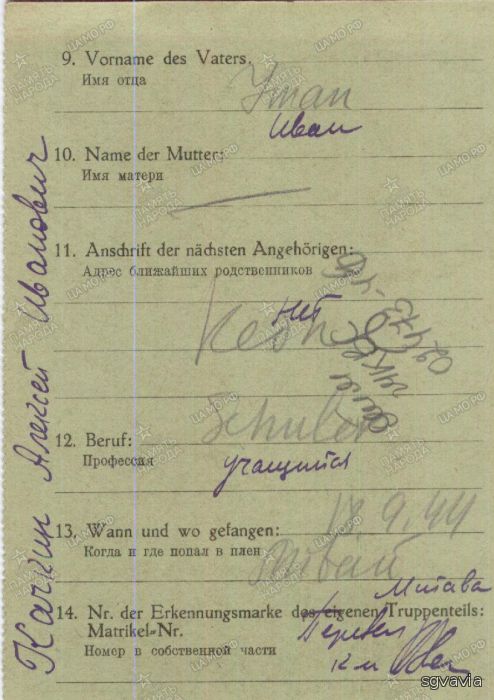 Качкин Алексей Иванович
9. Vorname des Vaters.
Имя отца
Iman
Иван
10. Name der Mutter:
Имя матери
11. Anschrift der nächsten Angehörigen:
Адрес ближайших родственников
нет
Schuler
12. Beruf:
Профессия
учащийся
13. Wann und wo gefangen:
Когда и где попал в плен
9.44
Mitau
Митава
14. Nr. der Erkennungsmarke des eigenen Truppenteils:
Matrikel-Nr.
Номер в собственной части
Перевел
sgvavia
ПАМЯТЬ НАРОДА
ЦАМО.РФ